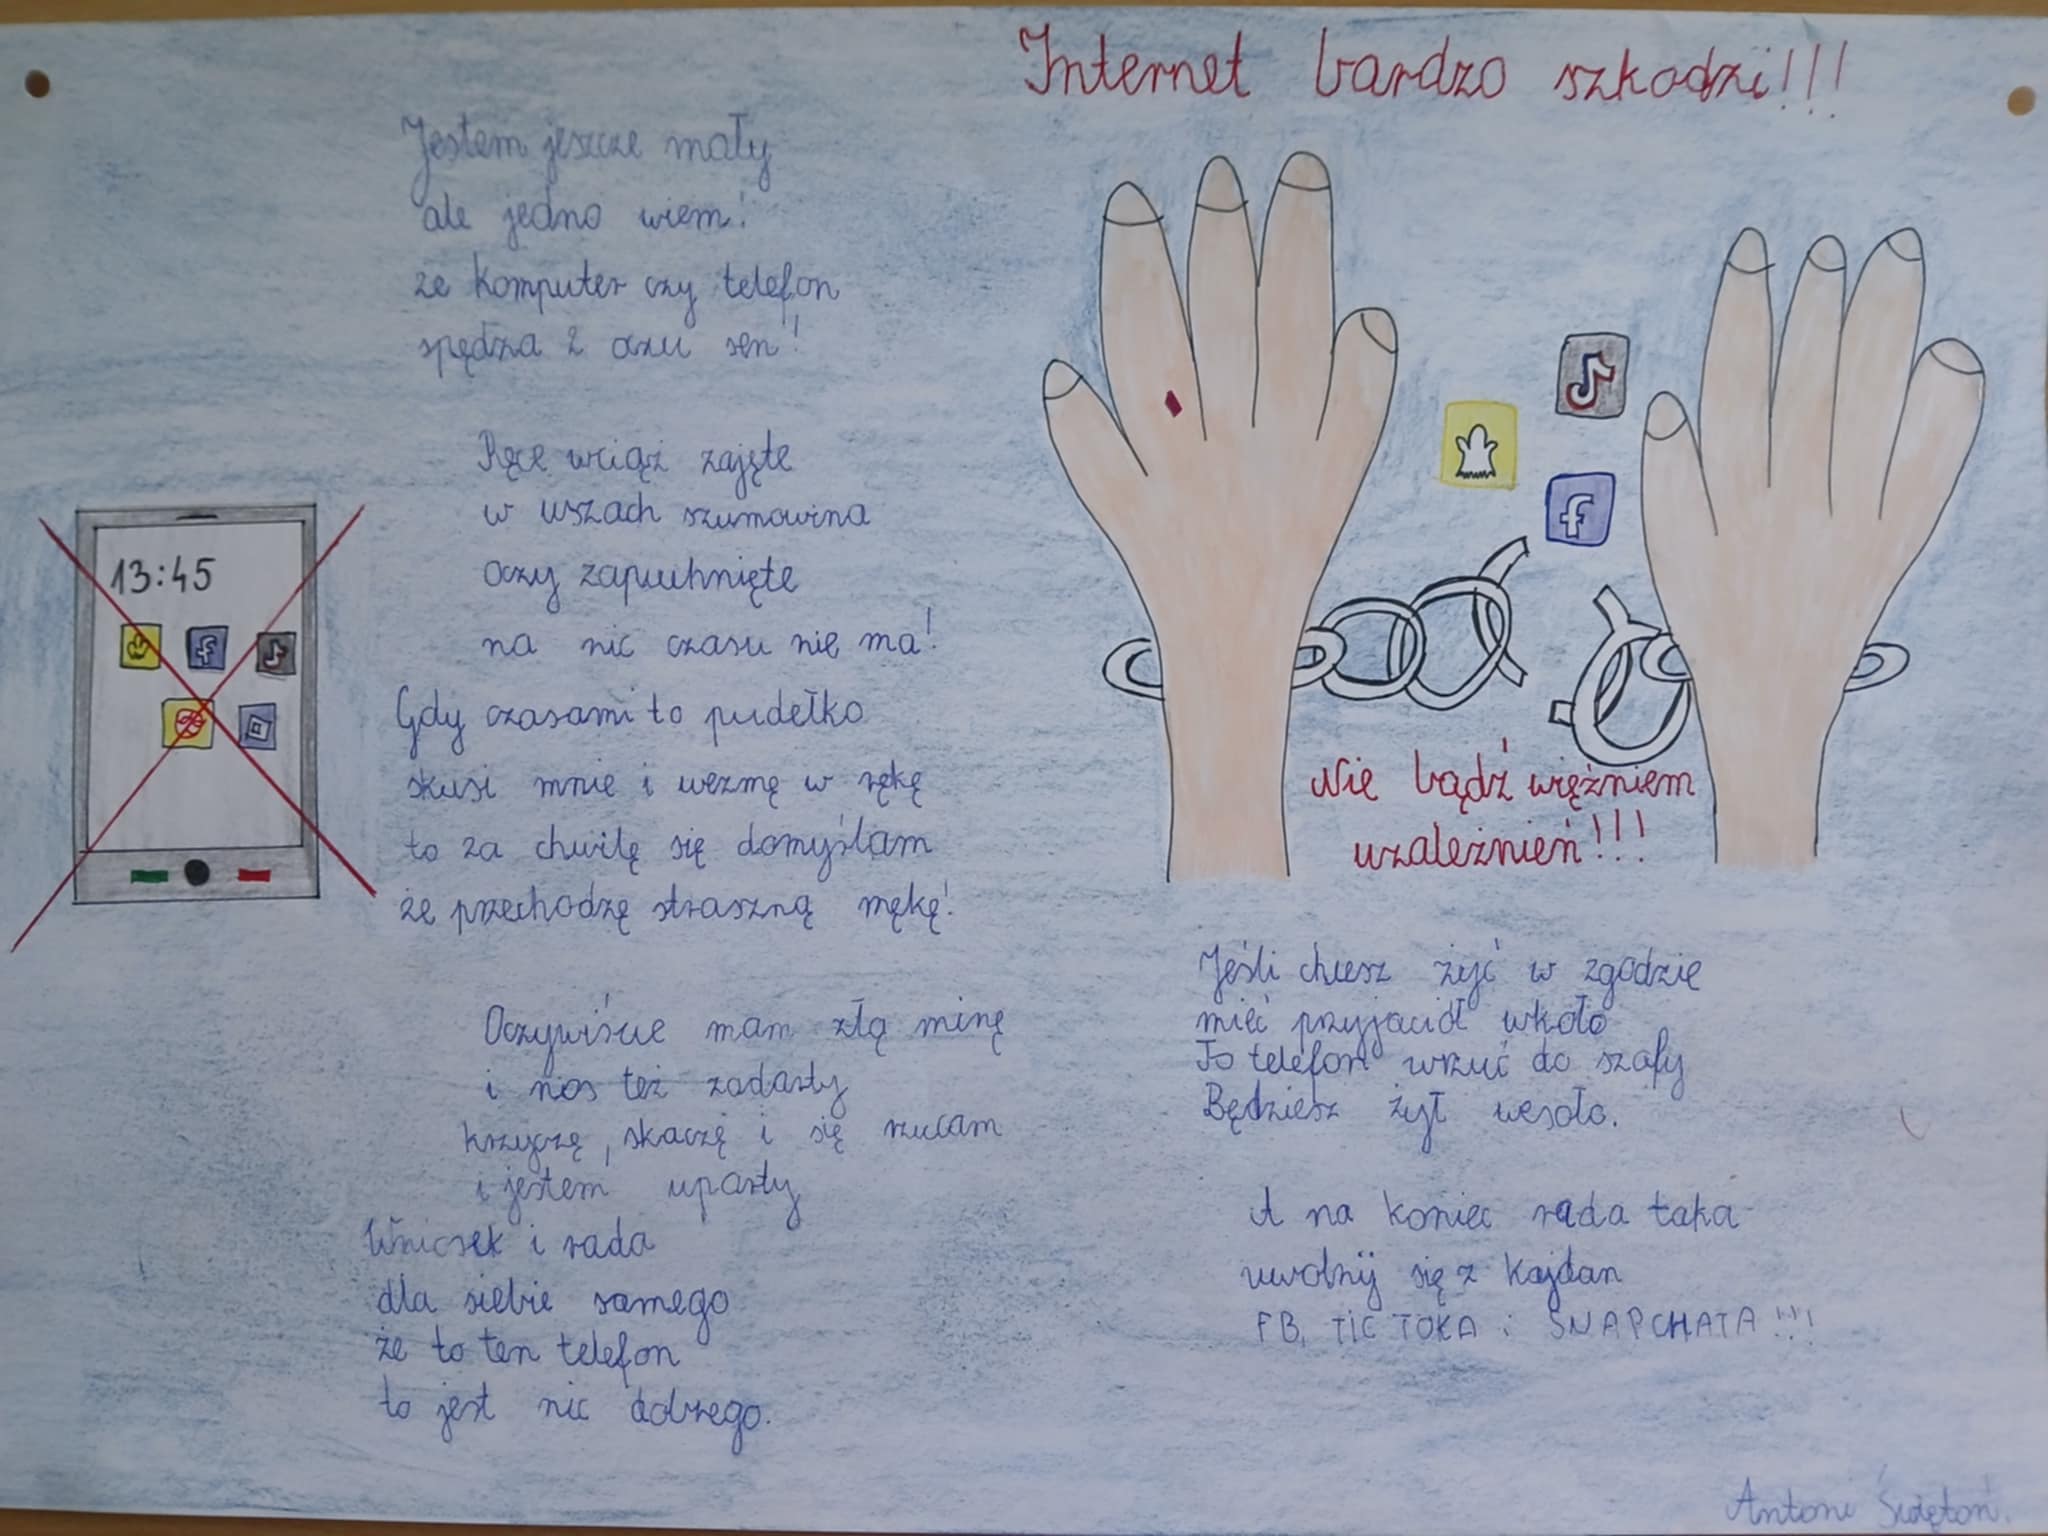 Internet bardzo szkodzi!!!
Jestem jeszcze mały
ale jedno wiem!
że komputer czy telefon
spędza z oczu sen!
Ręce wciąż zajęte
w uszach szumowina
Oczy zapuchnięte
na nic czasu nie ma!
Gdy czasami to pudełko
skusi mnie i wezmę w rękę
to za chwilę się domyślam
że przechodzę straszną mękę!
Oczywiście mam złą minę
i nos też zadarty
krzyczę, skaczę i się rzucam
i jestem uparty
Wniosek i rada
dla siebie samego
że to ten telefon
to jest nic dobrego.
13:45
f
f
Nie bądź więźniem
uzależnień!!!
Jeśli chcesz żyć w zgodzie
mieć przyjaciół wkoło
To telefon wrzuć do szafy
Będziesz żył wesoło.
A na koniec rada taka
uwolnij się z kajdan
FB, TIC TOKA i SNAPCHATA!!!
Antoni